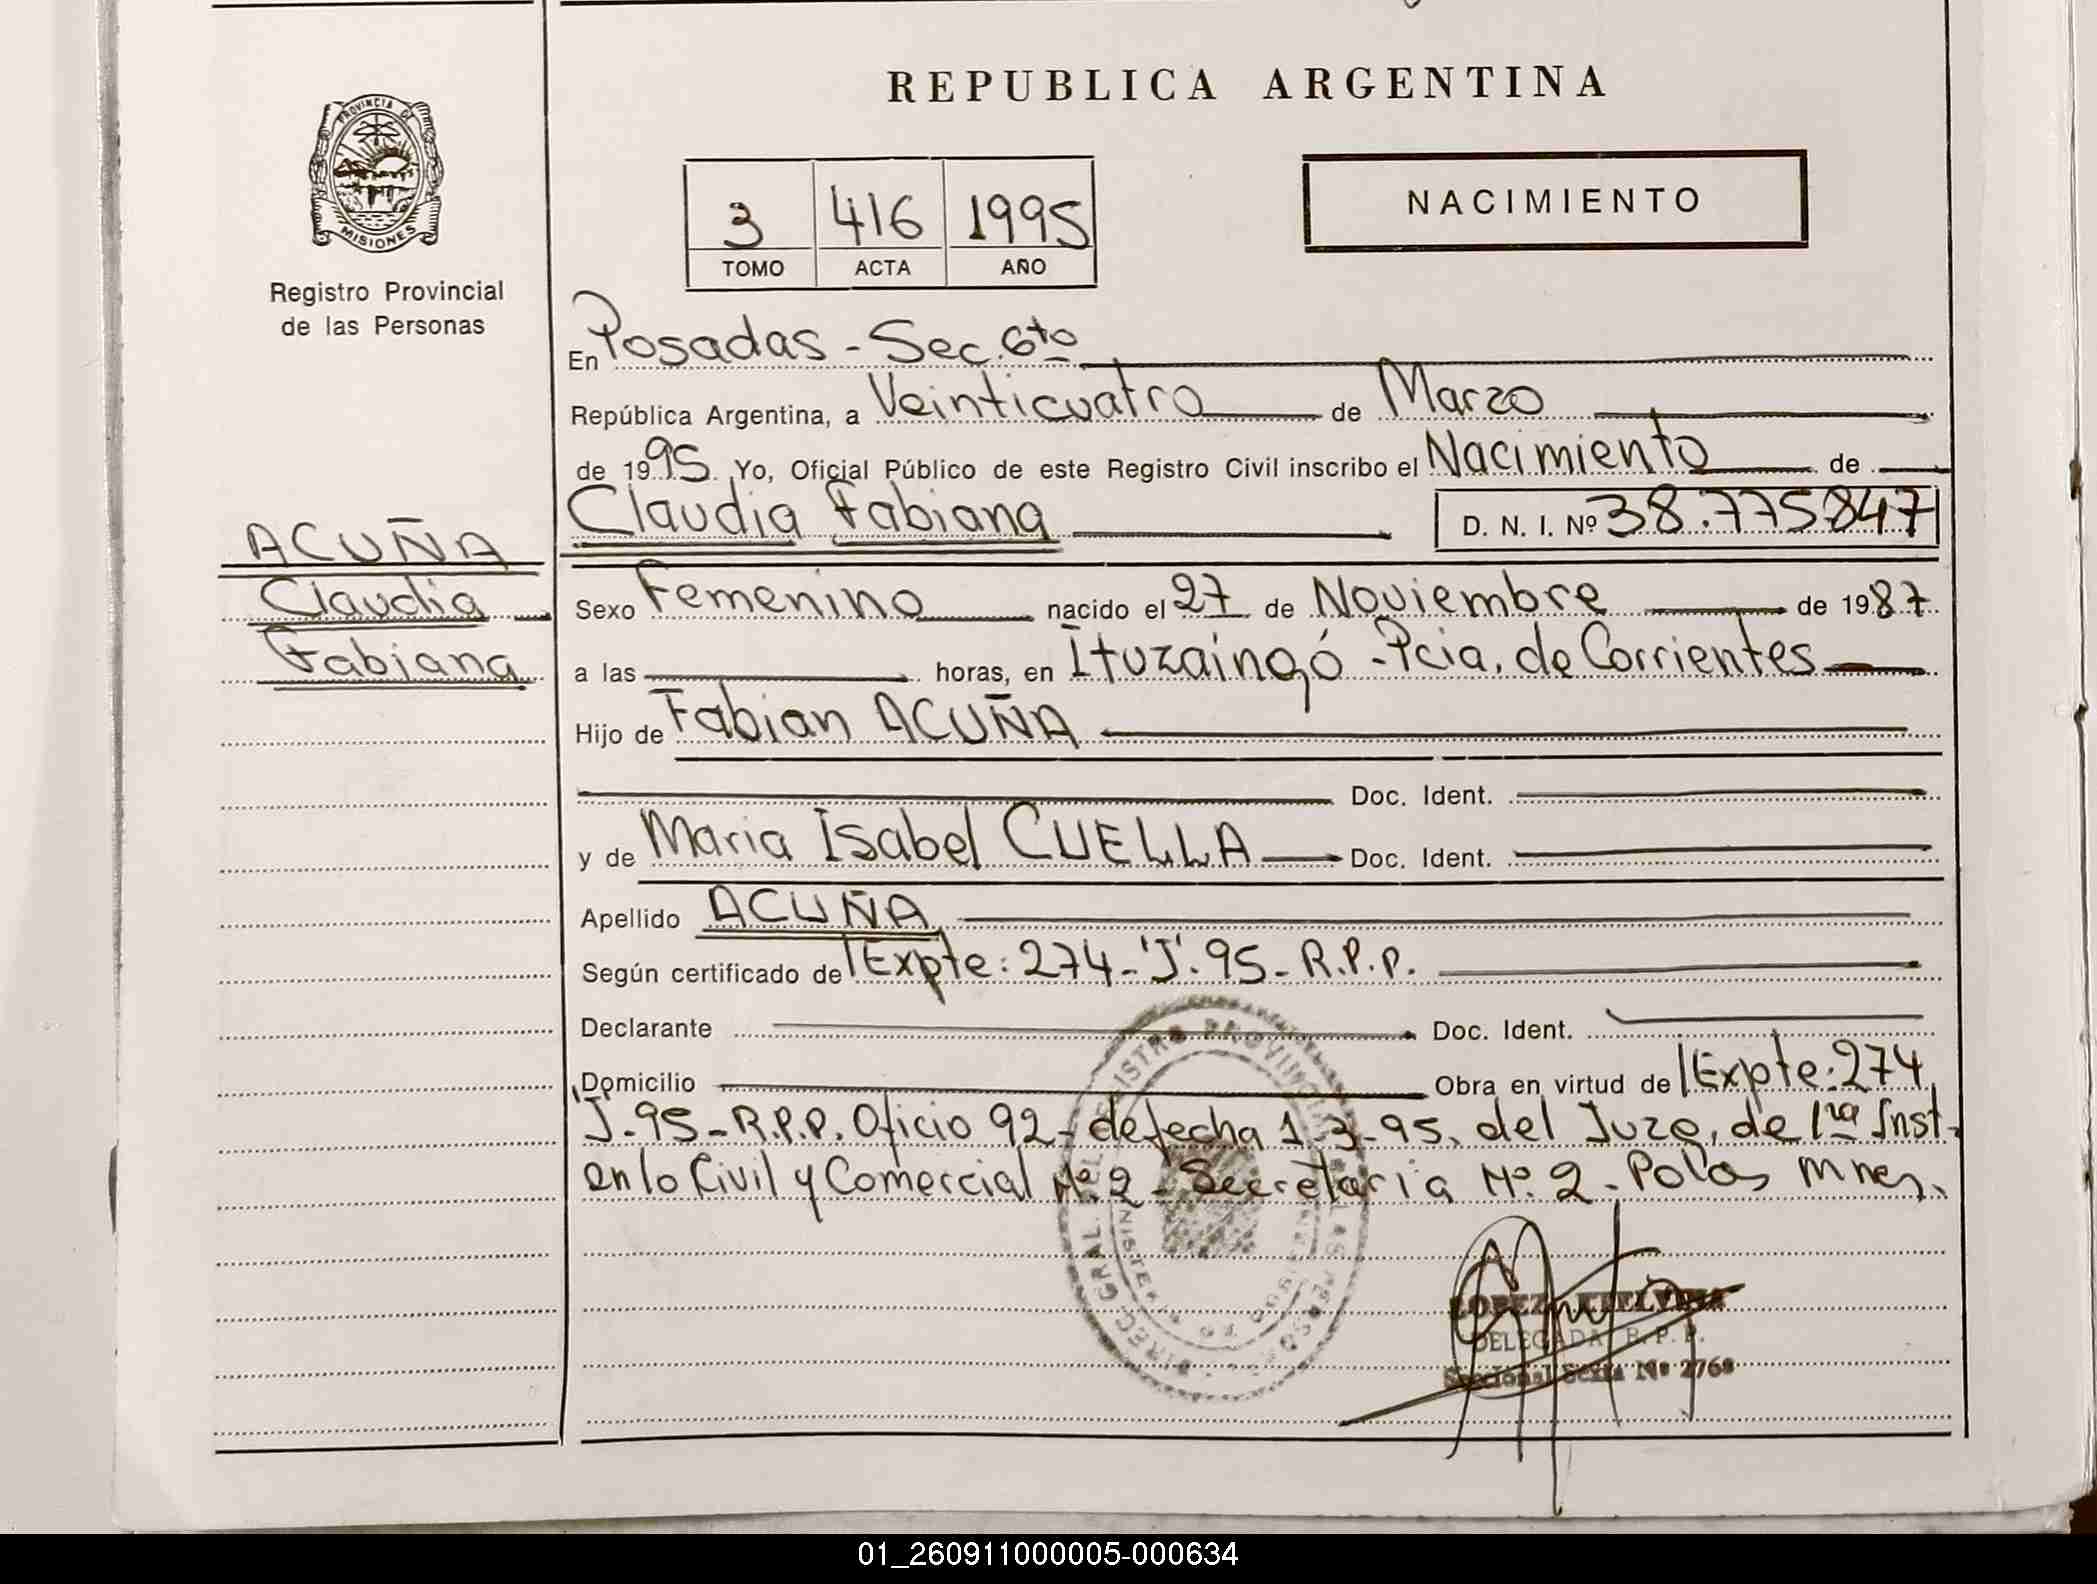 REPUBLICA ARGENTINA
PROVINCIA DE
MISIONES
Registro Provincial
de las Personas
3 416 1995
TOMO ACTA AÑO
NACIMIENTO
En Posadas - Sec. 6to
República Argentina, a Veinticuatro de Marzo
de 1995. Yo, Oficial Público de este Registro Civil inscribo el Nacimiento de
Claudia Fabiana D. N. I. Nº 38.775847
ACUÑA
Claudia
Fabiana
Sexo Femenino nacido el 27 de Noviembre de 1987
a las horas, en Ituzaingó - Pcia. de Corrientes
Hijo de Fabian ACUÑA
Doc. Ident.
y de Maria Isabel CUELLA Doc. Ident.
Apellido ACUÑA
Según certificado de Expte: 274-'J'.95-R.P.P.
Declarante Doc. Ident.
Domicilio Obra en virtud de Expte: 274
J-95-R.P.P. Oficio 92 - de fecha 1-3-95. del Juzg. de 1ra Inst.
en lo Civil y Comercial Nº 2 - Secretaria Nº 2 - Mnes.
DIREC. GRAL. DEL REGISTRO PROVINCIAL DE LAS PERSONAS
LOPEZ
DELEGADA R. P. P.
Seccional Sexta Nº 2768
01_260911000005-000634